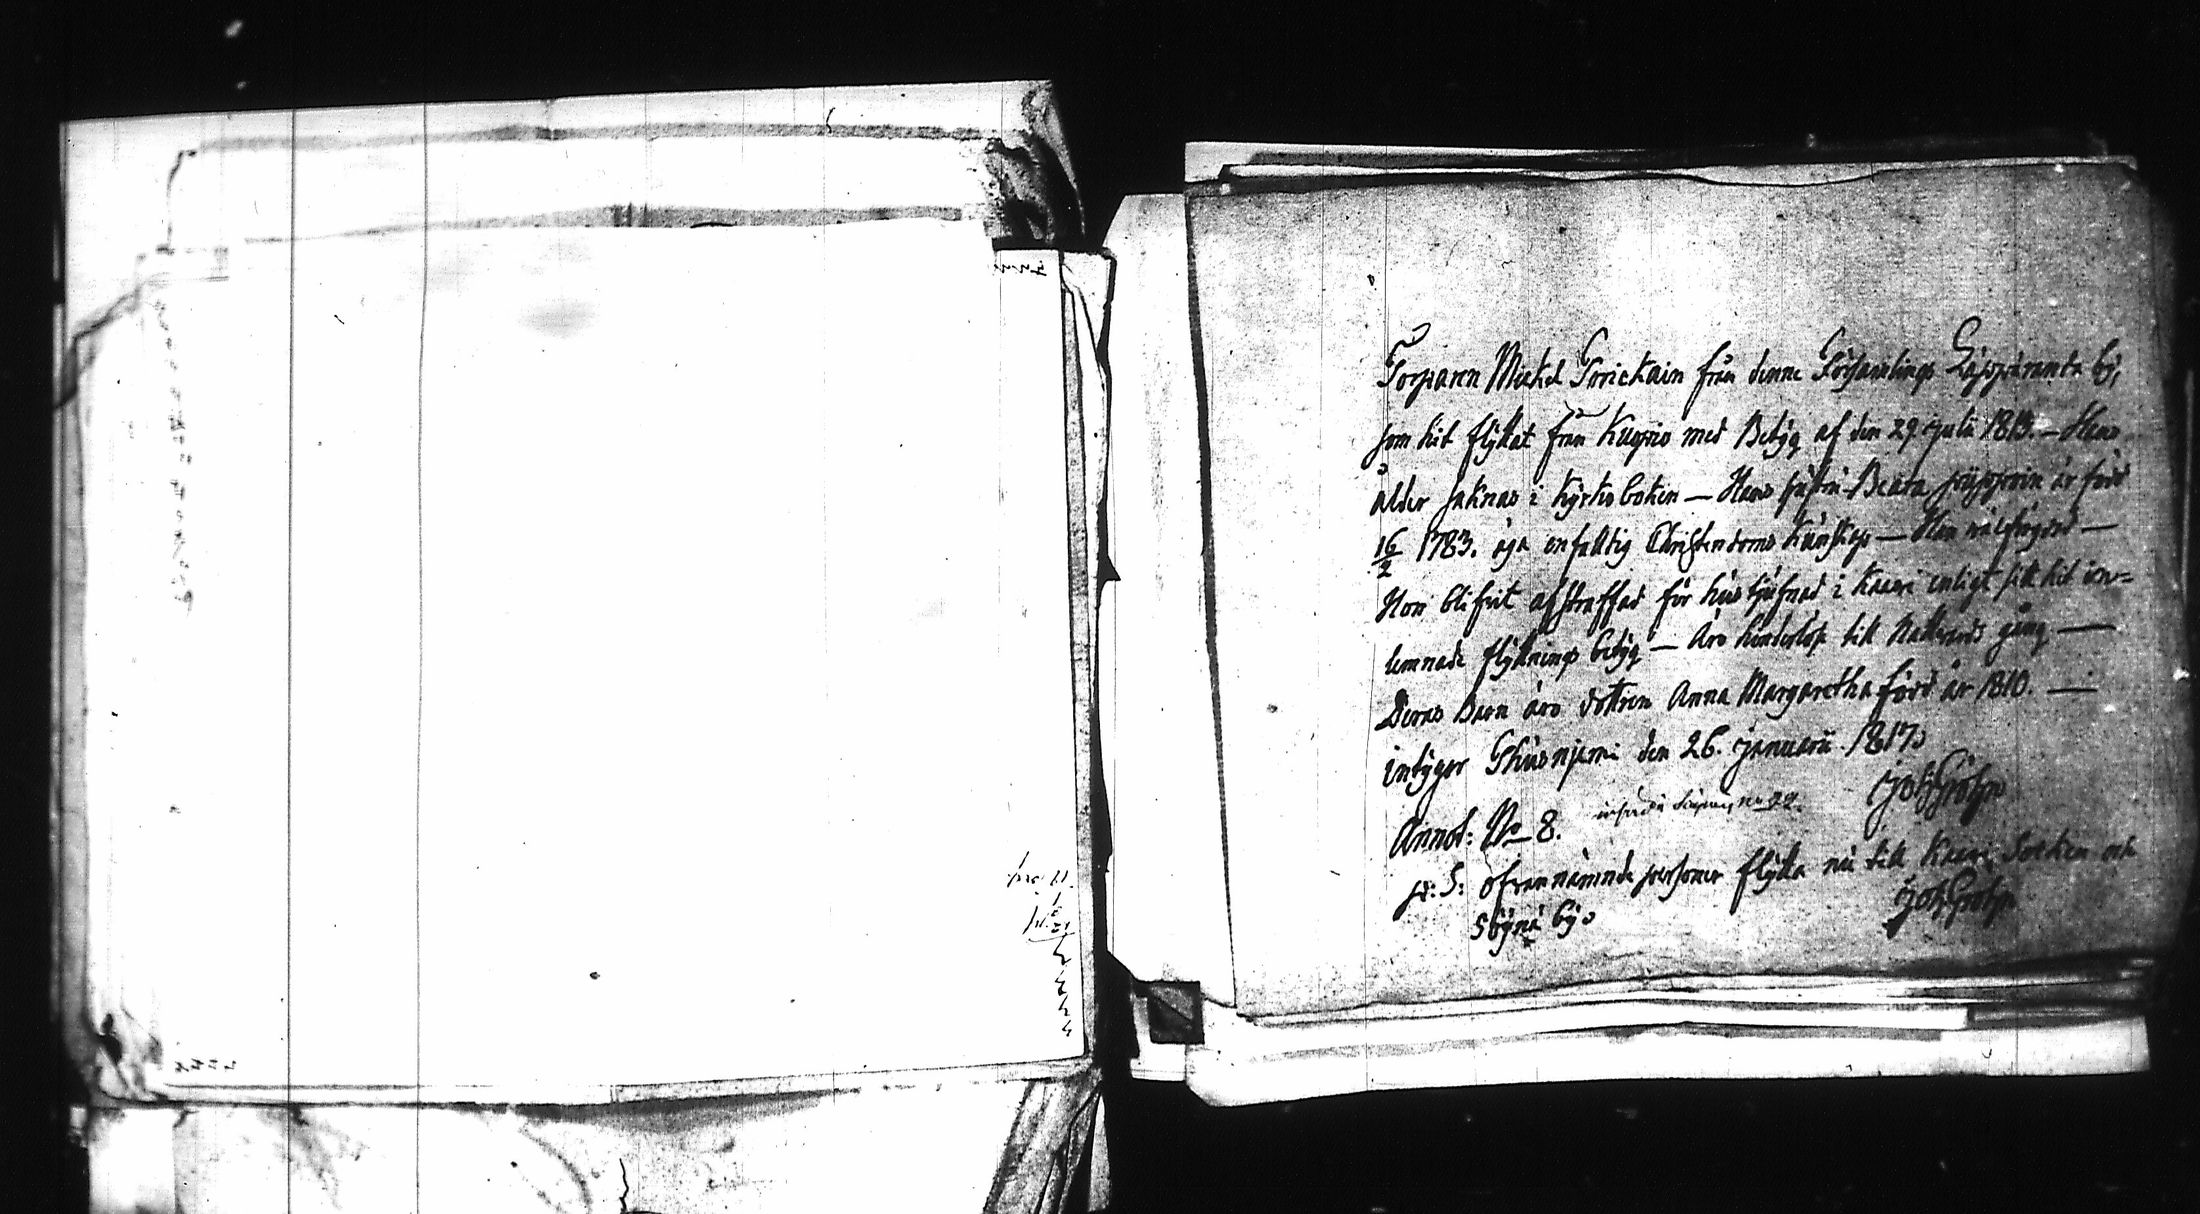 Torparen Mickel Torickain från denne Församlings Läppäranta by,
som hit flyttat från Kuopio med Betyg af den 29 julii 1813. — Hans
ålder saknas i kyrko boken — Hans hustru Beata är född
16/2 1783. äga enfaldig Christendoms kunskap — Han välfrägdad —
Hon blifvit afstraffad för hustjufnad i Kaavi enligt sitt hit in=
lemnade flyttnings betyg — äro hinderlöse till Nattvards gång —
Deras Barn äro dottren Anna Margaretha född år 1810. —
intygar den 26. januarii 1817.
Joh Gröhn
Annot: No 8. no 22.
p: S: ofvannämnde personer flytta nu till Kaavi Socken och
by.
Joh Gröhn